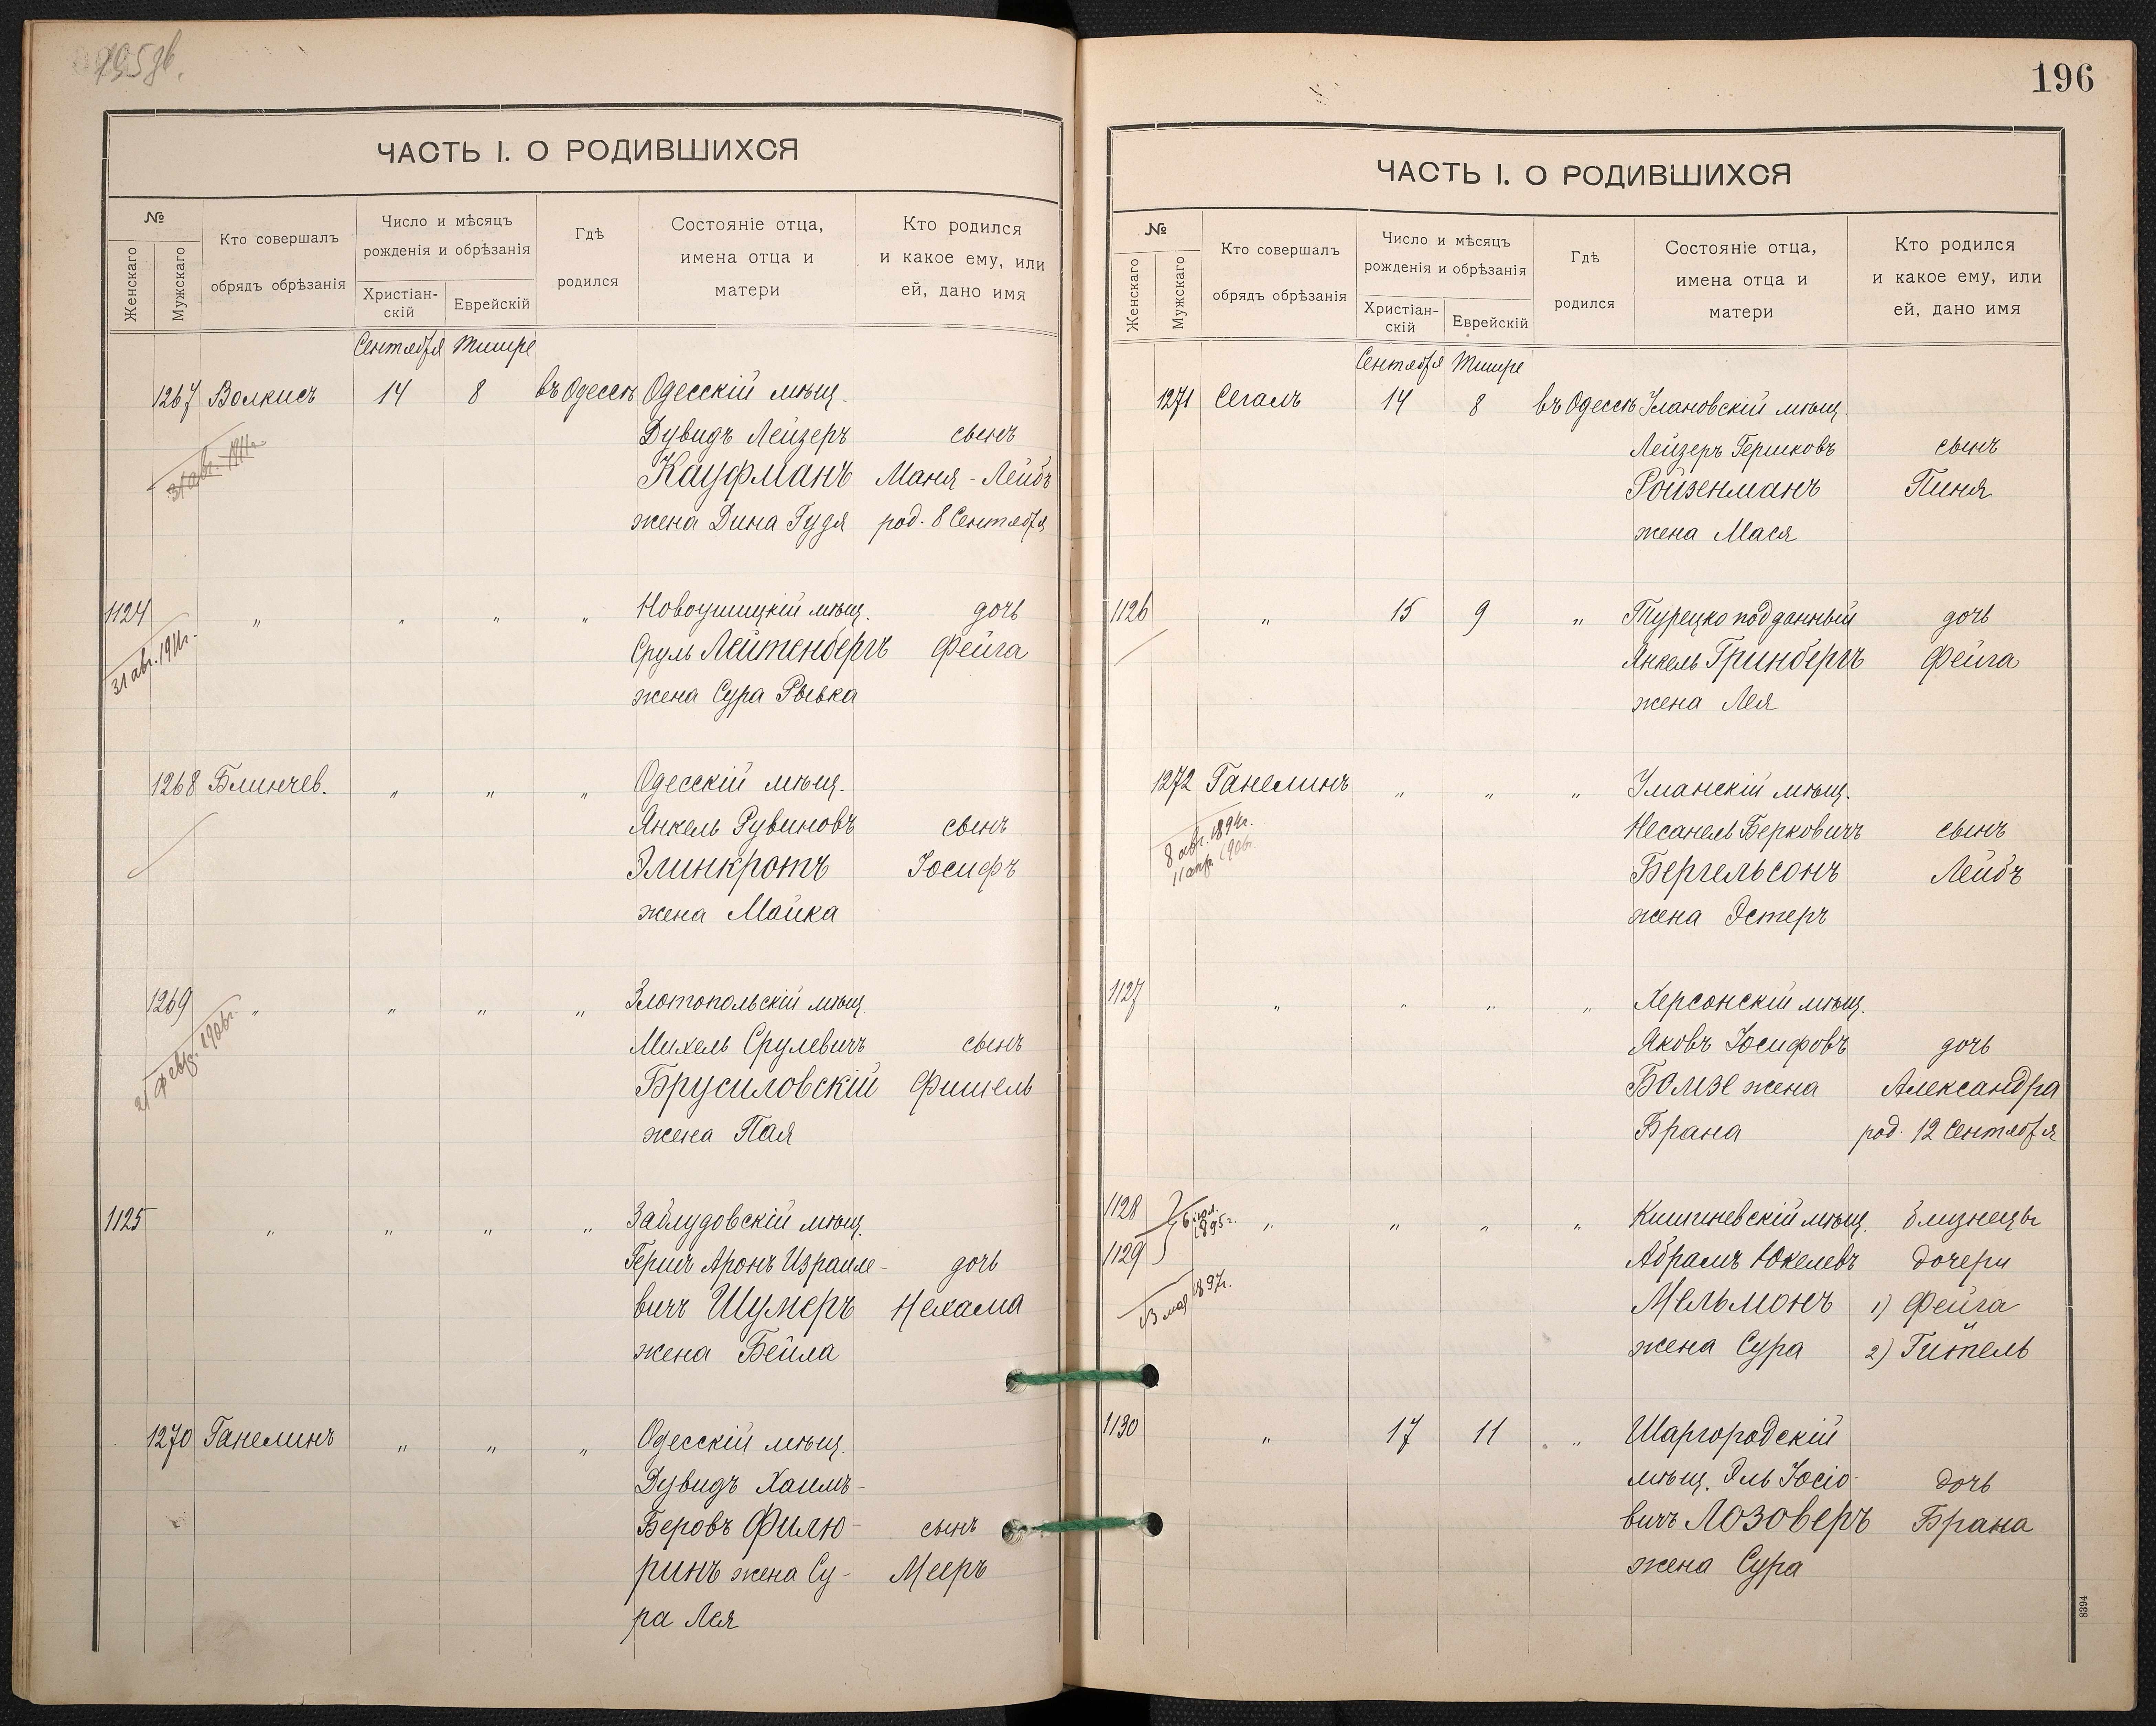 195 об.
ЧАСТЬ I. О РОДИВШИХСЯ
№
Женскаго
Мужскаго
Кто совершалъ
обрядъ обрѣзанія
Число и мѣсяцъ
рожденія и обрѣзанія
Христіан-
скій
Еврейскій
Гдѣ
родился
Состояніе отца,
имена отца и
матери
Кто родился
и какое ему, или
ей, дано имя
Сентября Тишре
1267 Волкисъ 14 8 въ Одессѣ Одесскій мѣщ.
Дувидъ Лейзеръ сынъ
Кауфманъ Маня-Лейбъ
жена Дина Гудя род. 8 Сентября
31 авг. 1911г.
1124 " " " " Новоушицкій мѣщ. дочь
Сруль Лейтенбергъ Фейга
жена Сура Рывка
31 авг. 1911г.
1268 Блинчев. " " " Одесскій мѣщ.
Янкель Рувиновъ сынъ
Элинкротъ Іосифъ
жена Майка
1269 " " " " Злотопольскій мѣщ.
Михель Срулевичъ сынъ
Брусиловскій Фишель
жена Пая
21 февр. 1906г.
1125 " " " " Заблудовскій мѣщ.
Гершъ Аронъ Израиле- дочь
вичъ Шумеръ Нехама
жена Бейла
1270 Ганелинъ " " " Одесскій мѣщ.
Дувидъ Хаимъ-
Беровъ Филю- сынъ
ринъ жена Су- Мееръ
ра Лея
196
ЧАСТЬ I. О РОДИВШИХСЯ
№
Женскаго
Мужскаго
Кто совершалъ
обрядъ обрѣзанія
Число и мѣсяцъ
рожденія и обрѣзанія
Христіан-
скій
Еврейскій
Гдѣ
родился
Состояніе отца,
имена отца и
матери
Кто родился
и какое ему, или
ей, дано имя
Сентября Тишре
1271 Сегалъ 14 8 въ Одессѣ Улановскій мѣщ.
Лейзеръ Гершковъ сынъ
Ройзенманъ Пиня
жена Мася
1126 " 15 9 " Турецко подданный дочь
Янкель Гринбергъ Фейга
жена Лея
1272 Ганелинъ " " " Уманскій мѣщ.
Несанель Берковичъ сынъ
Бергельсонъ Лейбъ
жена Эстеръ
8 авг. 1894г.
11 апр. 1906г.
1127 " " " " Херсонскій мѣщ.
Яковъ Іосифовъ дочь
Бомзе жена Александра
Брана род. 12 Сентября
1128 " " " " Кишиневскій мѣщ. близнецы
1129 Абрамъ Юкелевъ дочери
Мельмонъ 1) Фейга
жена Сура 2) Гитель
6 юл. 1895г.
13 мар 1897г.
1130 " 17 11 " Шаргородскій
мѣщ. Эль Іосіо- дочь
вичъ Лозоверъ Брана
жена Сура
8394